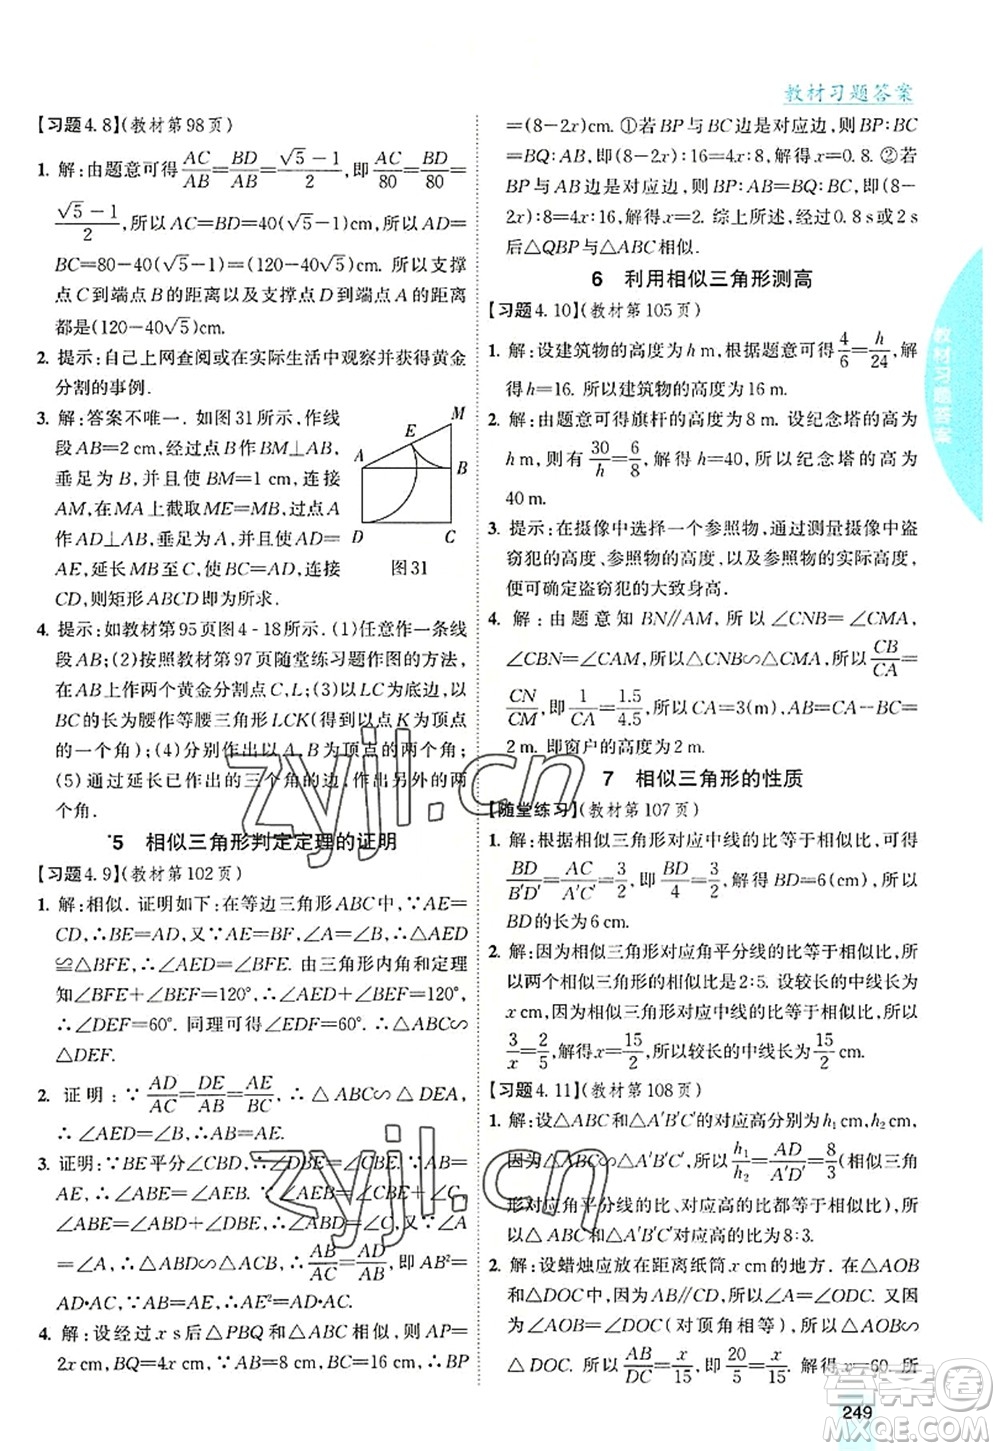 教材习题答案
【习题4.8】(教材第98页)
1. 解:由题意可得AC/AB=BD/AB=(√5-1)/2,即AC/80=BD/80=
(√5-1)/2,所以AC=BD=40(√5-1)cm,所以
BC=80-40(√5-1)=(120-40√5)cm. 所以支撑
点C到端点B的距离以及支撑点D到端点A的距离
都是(120-40√5)cm.
2. 提示:自己上网查阅或在实际生活中观察并获得黄金
分割的事例.
3. 解:答案不唯一. 如图31所示,作线
段AB=2 cm,经过点B作BM⊥AB,
使BM=1/2AB;以AB为边,连接
AM,在MA上截取ME=MB,过点A
作AD⊥AB,在AD上截取AD=
AE,延长MB至C,使BC=AD,连接
CD,则矩形ABCD即为所求.
A
E
M
B
D
C
图31
4. 提示:如教材第95页图4-18所示. (1)任意作一条线
段AB;(2)按照教材第97页随堂练习题作图的方法,
在AB上作两个黄金分割点C,L;(3)以LC为底边,以
BC的长为腰作等腰三角形LCK(得到以K为顶点
的一个角);(4)分别作出以A,B为顶点的两个角;
(5)通过延长已作出的三个角的边,作出另外的两
个角.
5 相似三角形判定定理的证明
【习题4.9】(教材第102页)
1. 解:相似. 证明如下:在等边三角形ABC中,∵AE=
CD,∴BE=AD,又∵AE=BF,∠A=∠B,∴△AED
≌△BFE,∴∠AED=∠BFE. 由三角形内角和定理
知∠BFE+∠BEF=120°,∴∠AED+∠BEF=120°,
∴∠DEF=60°. 同理可得∠EDF=60°. ∴△ABC∽
△DEF.
2. 证明:∵AD/AC=DE/AB=AE/BC,∴△ABC∽△DEA,
∴∠AED=∠B,
3. 证明:∵BE平分∠CBD,∴∠DBE=∠CBE,∵AB=
AE,∴∠ABE=∠AEB,∵∠AEB=∠C+∠CBE,
∠ABE=∠ABD+∠DBE,∴∠ABD=∠C,又∵∠A
=∠A,∴△ABD∽△ACB,∴AB/AC=AD/AB,即AB²=
AD•AC,∵AB=AE,∴AE²=AD•AC.
4. 解:设经过x s后△PBQ和△ABC相似,则AP=
2x cm,BQ=4x cm,∵AB=8 cm,BC=16 cm,∴BP
=(8-2x)cm. ①若BP与BC边是对应边,则BP:BC
=BQ:AB,即(8-2x):16=4x:8,解得x=0.8. ②若
BP与AB边是对应边,则BP:AB=BQ:BC,即(8-
2x):8=4x:16,解得x=2. 综上所述,经过0.8 s或2 s
后△QBP与△ABC相似.
6 利用相似三角形测高
【习题4.10】(教材第105页)
1. 解:设建筑物的高度为h m,根据题意可得4/6=h/24,解
得h=16. 所以建筑物的高度为16 m.
2. 解:由题意可得旗杆的高度为8 m. 设纪念塔的高为
h m,则有30/h=6/8,解得h=40,所以纪念塔的高为
40 m.
3. 提示:在摄像中选择一个参照物,通过测量摄像中盗
窃犯的高度、参照物的高度,以及参照物的实际高度,
便可确定盗窃犯的大致身高.
4. 解:由题意知BN∥AM,所以∠CNB=∠CMA,
∠CBN=∠CAM,所以△CNB∽△CMA,所以CB/CA=
CN/CM,即1/CA=1.5/4.5,所以CA=3(m),所以BA=CA-BC=
2 m. 即窗户的高度为2 m.
7 相似三角形的性质
【随堂练习】(教材第107页)
1. 解:根据相似三角形对应中线的比等于相似比,可得
BD/B′D′=AC/A′C′=3/2,即BD/4=3/2,解得BD=6(cm),所以
BD的长为6 cm.
2. 解:因为相似三角形对应角平分线的比等于相似比,所
以两个相似三角形的相似比是2:5. 设较长的中线长为
x cm,因为相似三角形对应中线的比等于相似比,所以
3/x=2/5,解得x=15/2,所以较长的中线长为15/2 cm.
【习题4.11】(教材第108页)
1. 解:设△ABC和△A′B′C′的对应高分别为h₁ cm,h₂ cm,
因为△ABC∽△A′B′C′,所以h₁/h₂=AD/A′D′=8/3(相似三角
形对应角平分线的比、对应高的比都等于相似比),所
以△ABC与△A′B′C′对应高的比为8:3.
2. 解:设蜡烛应放在距离纸筒x cm的地方. △AOB
和△DOC中,因为AB∥CD,所以∠A=∠ODC. 又因
为∠AOB=∠DOC(对顶角相等),所以△AOB∽
△DOC. 所以AB/DC=x/15,即20/5=x/15. 解得x=60. 所
教材习题答案
249
zyjl.cn
zyjl.cn
答案圈